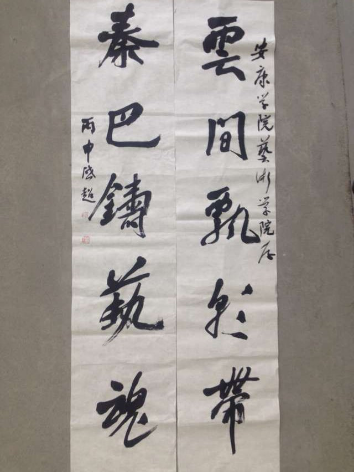 安康学院藝術学院存
雲間飄彩帶
秦巴鑄藝魂
丙申超